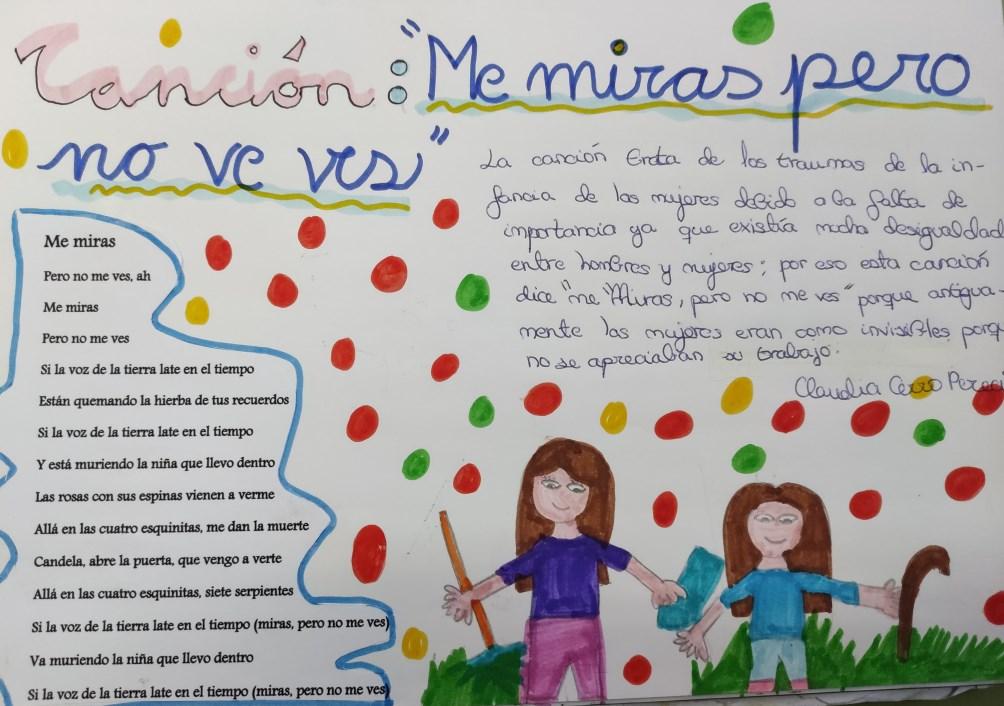 Canción: "Me miras pero
no ve ves"
La canción trata de los traumas de la in-
fancia de las mujeres debido a la falta de
importancia ya que existía mucha desigualdad
entre hombres y mujeres; por eso esta canción
dice "me Miras, pero no me ves" porque antigua-
mente las mujeres eran como invisibles porq
no se apreciaban su trabajo.
Claudia Cerro
Me miras
Pero no me ves, ah
Me miras
Pero no me ves
Si la voz de la tierra late en el tiempo
Están quemando la hierba de tus recuerdos
Si la voz de la tierra late en el tiempo
Y está muriendo la niña que llevo dentro
Las rosas con sus espinas vienen a verme
Allá en las cuatro esquinitas, me dan la muerte
Candela, abre la puerta, que vengo a verte
Allá en las cuatro esquinitas, siete serpientes
Si la voz de la tierra late en el tiempo (miras, pero no me ves)
Va muriendo la niña que llevo dentro
Si la voz de la tierra late en el tiempo (miras, pero no me ves)